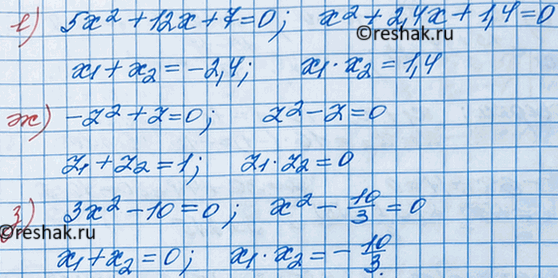 е) 5x² + 12x + 7 = 0; x² + 2,4x + 1,4 = 0
©reshak.ru
x₁ + x₂ = -2,4; x₁ · x₂ = 1,4
ж) -z² + z = 0; z² - z = 0
z₁ + z₂ = 1; z₁ · z₂ = 0
з) 3x² - 10 = 0; x² - 10/3 = 0
©reshak.ru
x₁ + x₂ = 0; x₁ · x₂ = -10/3.